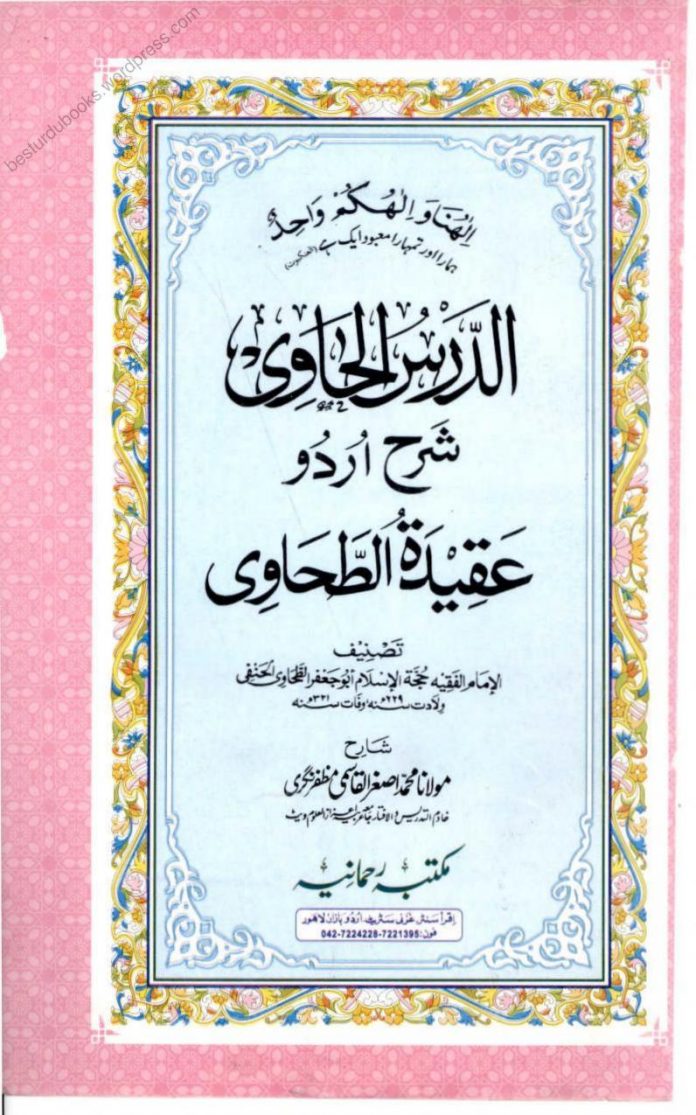 besturdubooks.wordpress.com
اِلٰهُنَا وَ اِلٰهُكُمْ وَاحِدٌ
ہمارا اور تمہارا معبود ایک ہے (العنکبوت)
الدَّرْسُ الحَاوِی
شرح اُردُو
عَقِيْدَةُ الطَّحَاوِی
تَصْنِیْف
الإمام الفقيه حُجَّة الإسلام أبو جَعْفر الطحاوی الحَنفی
ولادت سنه ۲۲۹ھ، وفات سنه ۳۲۱ھ
شارح
مولانا محمد اصغر القاسمی مظفرنگری
مکتبہ رحمانیہ
اِقرأ سنٹر غزنی سٹریٹ اُردُو بازار لاهور
فون: 042-7224228-7221395